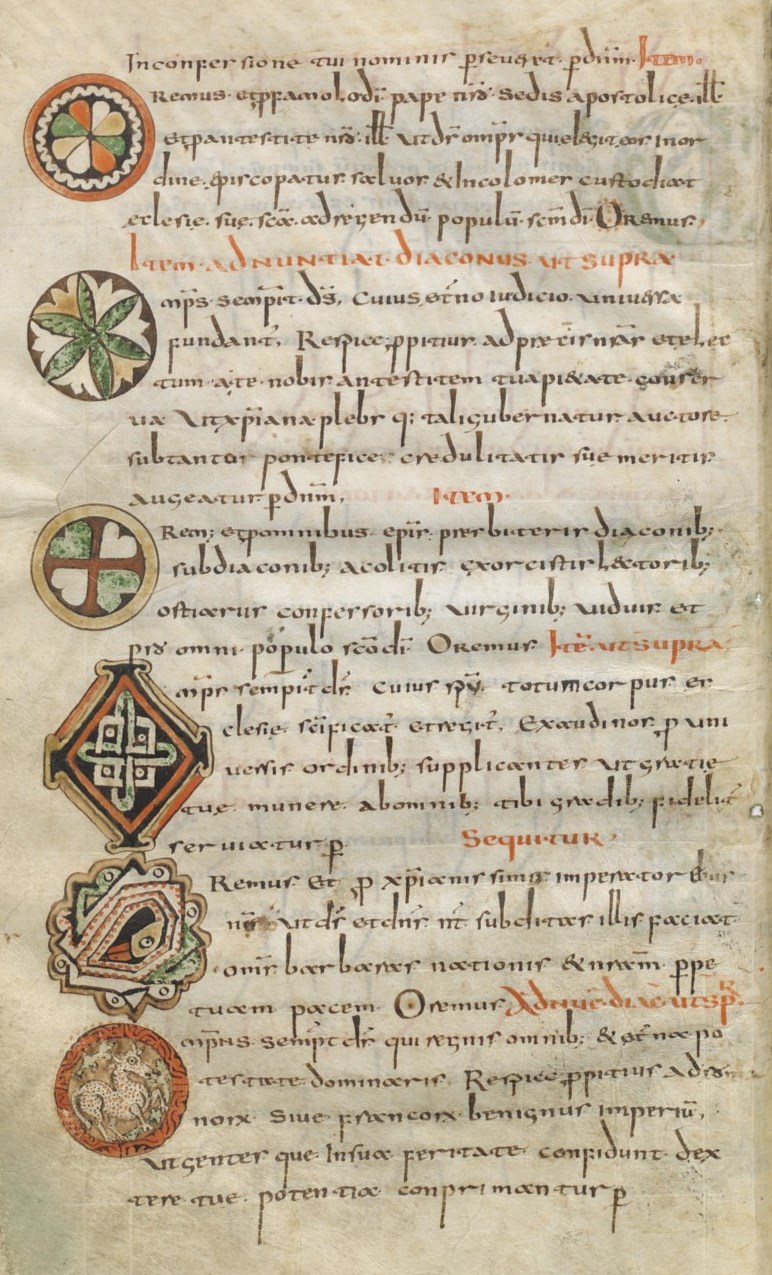 In confersione tui nominis perseueret. per dnm. Item.
Remus. et pro famolo di pape nro sedis apostolice. ill
et pro antestite nro. ill. ut ds omps qui elegit eos in or
dine. episcopatus. saluos & incolomes custodiat
eclesie. sue. scae. ad regendum populum scm di. Oremus.
Item. adnuntiat. diaconus. ut supra
mps. sempit. ds. cuius. eterno iudicio. uniuersa
fundant. Respice. propitius. ad preces nras et elec
tum. a te. nobis antestitem tua pietate. conser
ua ut xpiana plebs q; tali gubernatur auctore.
sub tantor pontefice. credulitatis sue meritis.
augeatur per dnm. Item.
Rem; et pro omnibus. epis. presbiteris diaconib;
subdiaconib; acolitis. exorcistis lectorib;
ostiarius confessorib; uirginib; uiduis. et
pro omni. populo sco di. Oremus Ite. ut supra
mps sempit ds. cuius spu. totum corpus. ec
clesie. scificat. et regit. Exaudi nos. pro uni
uersis ordinib; supplicantes ut gratie
tue. munere. ab omnib; tibi gradib; fidelit
seruiatur p. Sequitur.
Remus. Et pro xpianis simis imperator
ut ds et dns nt subditas illis faciat.
oms barbaras nationis & nram. perpe
tuam pacem. Oremus Adnuc. diac. ut sp.
mpns. sempit ds qui regnis omnib; & eterna po
testate dominaris. Respice. propitius ad ro
norx siue francorx benignus imperium,
ut gentes que. In sua feritate confidunt dex
tere tue. potentia conprimantur p